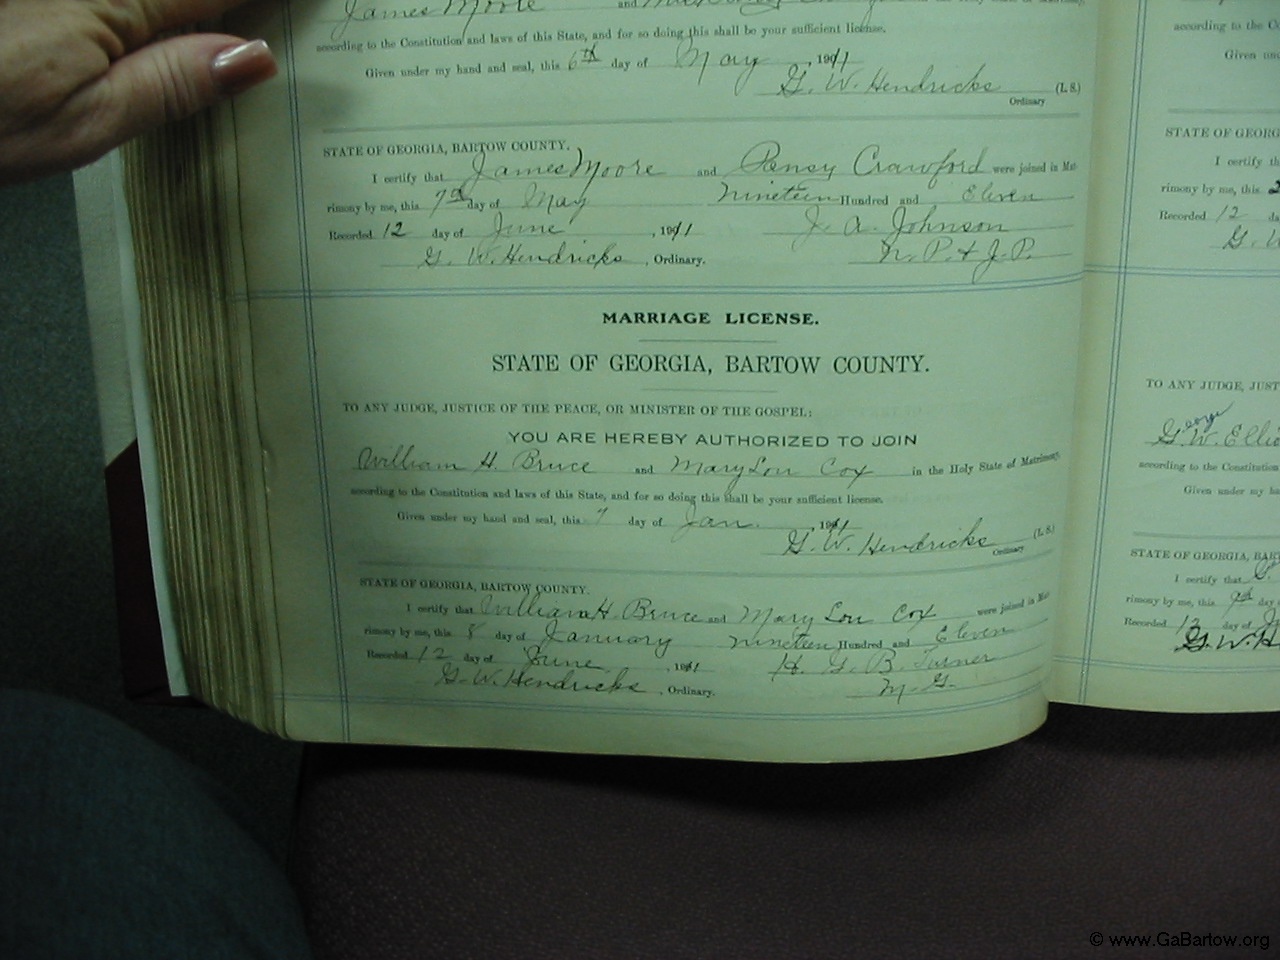 James Moore and
according to the Constitution and laws of this State, and for so doing this shall be your sufficient license.
Given under my hand and seal, this 6th day of May, 1911
G. W. Hendricks (L. S.)
Ordinary
STATE OF GEORGIA, BARTOW COUNTY.
I certify that James Moore and Pansy Crawford were joined in Mat-
rimony by me, this 7th day of May nineteen Hundred and Eleven
Recorded 12 day of June, 1911 J. A. Johnson
G. W. Hendricks, Ordinary. N. P. & J. P.
MARRIAGE LICENSE.
STATE OF GEORGIA, BARTOW COUNTY.
TO ANY JUDGE, JUSTICE OF THE PEACE, OR MINISTER OF THE GOSPEL:
YOU ARE HEREBY AUTHORIZED TO JOIN
William H. Bruce and Mary Lou Cox in the Holy State of Matrimony,
according to the Constitution and laws of this State, and for so doing this shall be your sufficient license.
Given under my hand and seal, this 7 day of Jan., 1911
G. W. Hendricks (L. S.)
Ordinary
STATE OF GEORGIA, BARTOW COUNTY.
I certify that William H. Bruce and Mary Lou Cox were joined in Mat-
rimony by me, this 8 day of January nineteen Hundred and Eleven
Recorded 12 day of June, 1911 H. G. B. Turner
G. W. Hendricks, Ordinary. M. G.
according to the Co
Given un
STATE OF GEORG
I certify th
rimony by me, this 2
Recorded 12 da
G. W
TO ANY JUDGE, JUST
George
G. W. Ellio
according to the Constitution
Given under my ha
STATE OF GEORGIA, BART
I certify that G.
rimony by me, this 9th day
Recorded 12 day of J
G. W. H
© www.GaBartow.org